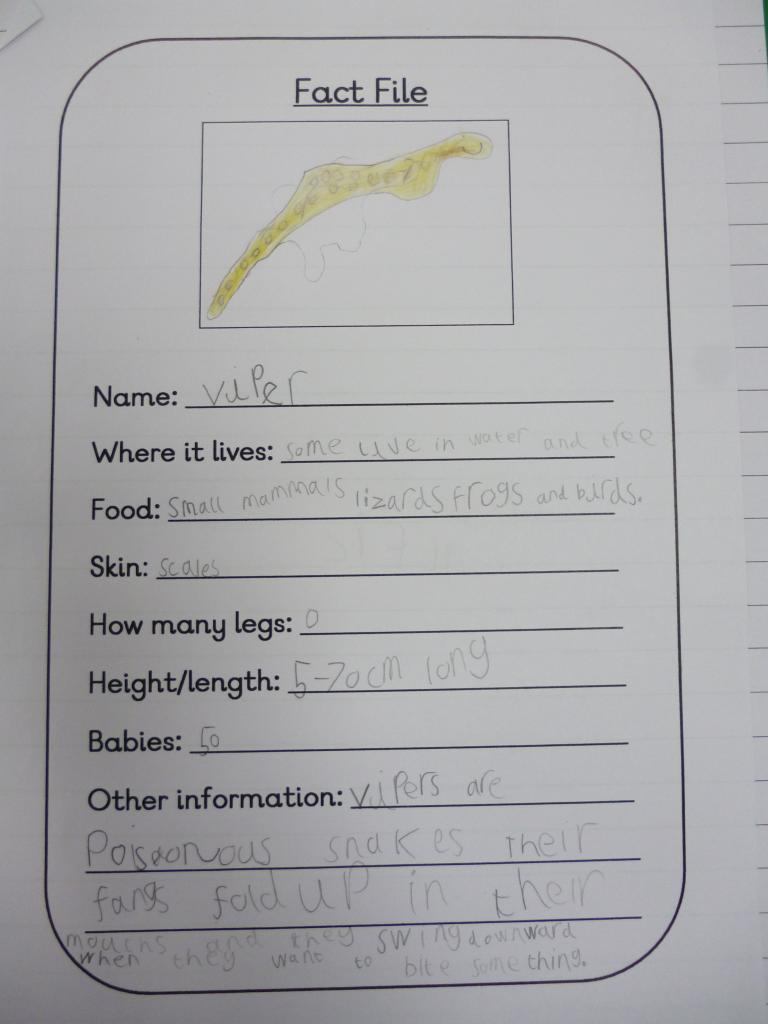 Fact File
Name: viper
Where it lives: some live in water and tree
Food: Small mammals lizards frogs and birds.
Skin: scales
How many legs: 0
Height/length: 5-70cm long
Babies: 50
Other information: vipers are
Poisonous snakes their
fangs fold up in their
mouths and they swing downward
when they want to bite something.